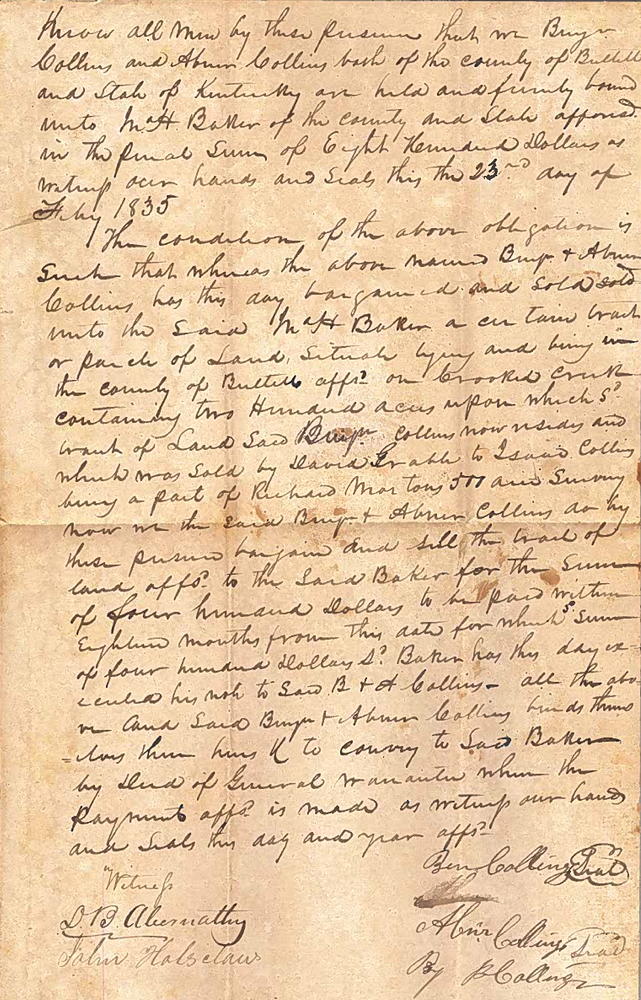 Know all men by these presence that we Benjn
Collins and Abner Collins both of the county of Bullett
and State of Kentucky are held and firmly bound
unto Wm H Baker of the county and State afforsd
in the penal Sum of Eight Hundred Dollars as
witness our hands and Seals this the 23rd day of
Feby 1835
The condition of the above obligation is
Such that whereas the above named Benjn & Abner
Collins has this day bargained and Sold sold
unto the Said Wm H Baker a certain tract
or parcle of Land, Situate lying and being in
the county of Bullett affsd on Crooked creek
containing two Hundred acres upon which sd
tract of Land Said Benjn Collins now resides and
which was Sold by David Grable to Isaac Collins
being a part of Richard Mortons 500 acre Survey
now we the said Benjn & Abner Collins do by
these presence bargain and sell the tract of
land affsd to the Said Baker for the Sum
of four hundred Dollars to be paid within
Eighteen months from this date for which sd Sum
of four hundred Dollars Sd Baker has this day ex-
ecuted his note to Said B & A Collins - all the abo-
ve and Said Benjn & Abner Collins binds thems
=elves there heirs &c to convey to Said Baker
by Deed of General warantee when the
Payment affsd is made as witness our hands
and Seals this day and year affsd
Ben Collins Seal
Witness
D. B. Abernathy
Abnr Collings Seal
John Holsclaw
By B Collings